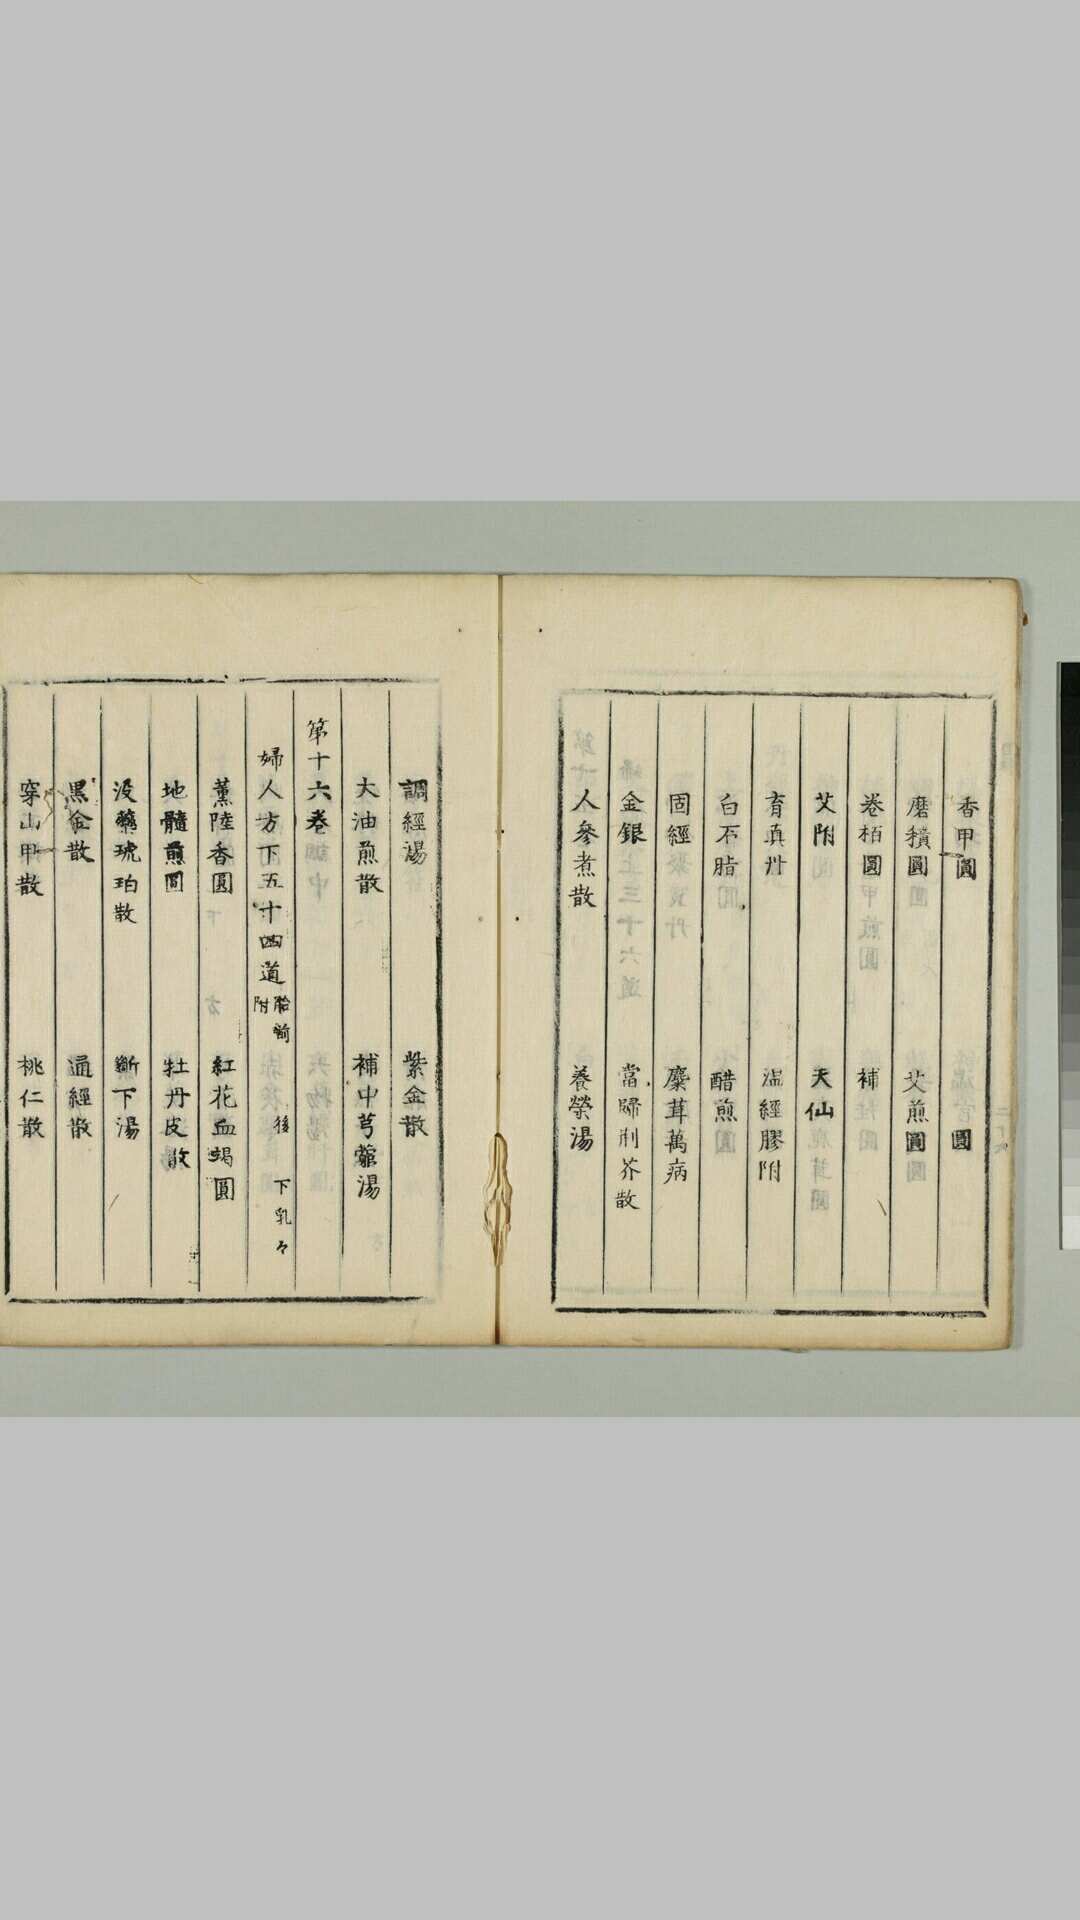 香甲圓 圓
磨積圓 艾煎圓
卷栢圓 補
艾附 天仙
育真丹 温經膠附
白不脂 醋煎
固經 麋茸萬病
金銀 當歸荆芥散
人參煮散 養榮湯
調經湯 紫金散
大油煎散 補中芎藭湯
第十六卷
婦人方下五十四道 胎前 後 下乳々附
薰陸香圓 紅花血竭圓
地髓煎圓 牡丹皮散
没藥琥珀散 斷下湯
黑金散 通經散
穿山甲散 桃仁散